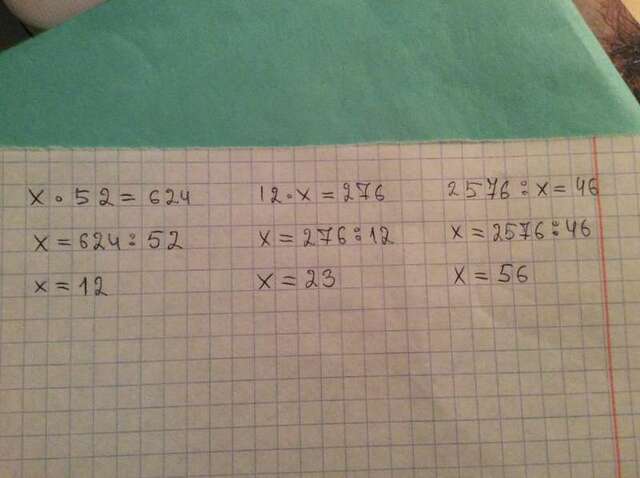 x · 52 = 624
x = 624 : 52
x = 12
12 · x = 276
x = 276 : 12
x = 23
2576 : x = 46
x = 2576 : 46
x = 56